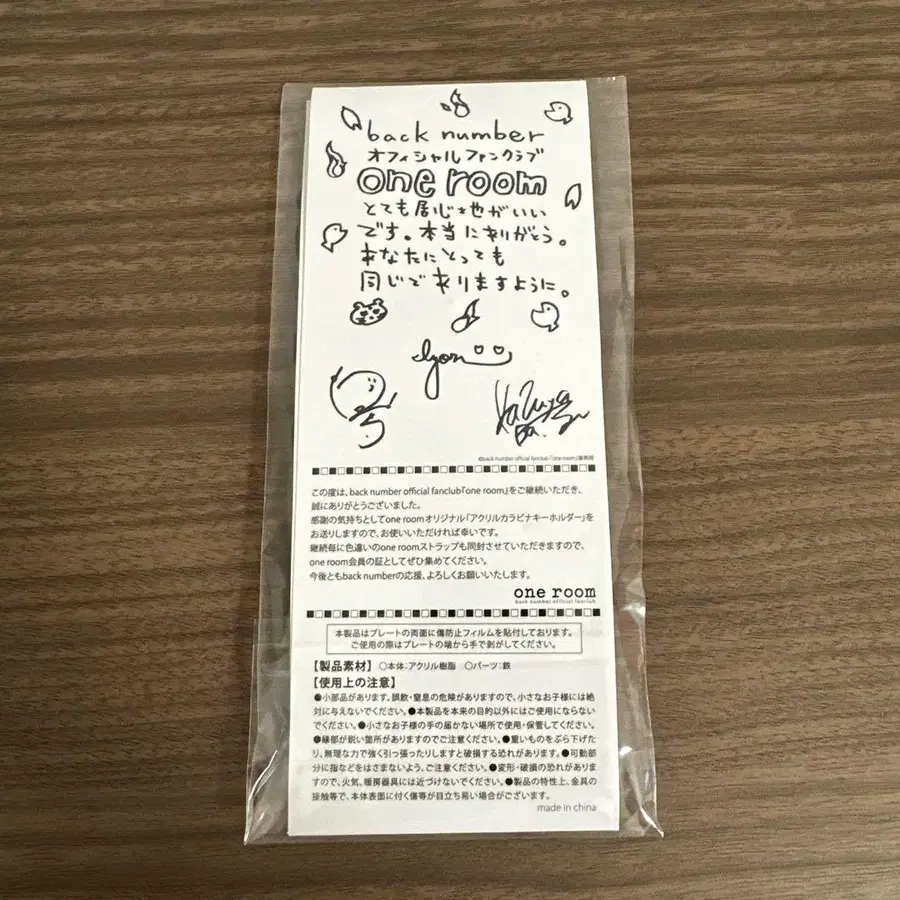 back number
オフィシャルファンクラブ
one room
とても居心地がいい
です。本当にありがとう。
あなたにとっても
同じでありますように。
©back number official fanclub「one room」事務局
この度は、back number official fanclub『one room』をご継続いただき、
誠にありがとうございました。
感謝の気持ちとしてone roomオリジナル「アクリルカラビナキーホルダー」を
お送りしますので、お使いいただければ幸いです。
継続毎に色違いのone roomストラップも同封させていただきますので、
one room会員の証としてぜひ集めてください。
今後ともback numberの応援、よろしくお願いいたします。
one room
back number official fanclub
本製品はプレートの両面に傷防止フィルムを貼付しております。
ご使用の際はプレートの端から手で剥がしてください。
【製品素材】 ○本体:アクリル樹脂 ○パーツ:鉄
【使用上の注意】
●小部品があります。誤飲・窒息の危険がありますので、小さなお子様には絶
対に与えないでください。●本製品を本来の目的以外にはご使用にならない
でください。●小さなお子様の手の届かない場所で使用・保管してください。
●縁部が鋭い箇所がありますのでご注意ください。●重いものをぶら下げた
り、無理な力で強く引っ張ったりしますと破損する恐れがあります。●可動部
分に指などをはさまないよう、ご注意ください。●変形・破損の恐れがありま
すので、火気、暖房器具には近づけないでください。●製品の特性上、金具の
接触等で、本体表面に付く傷等が目立ち易い場合がございます。
made in china